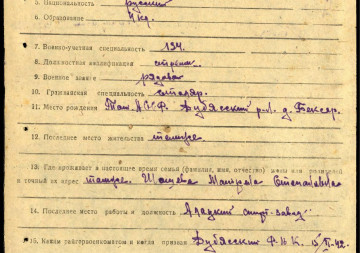 5. Национальность русский
6. Образование 4 кл.
7. Военно-учетная специальность 134
8. Должностная квалификация стрелок
9. Военное звание рядовой
10. Гражданская специальность столяр.
11. Место рождения Тат. АССР. Дубьясский р-н. д.
12. Последнее место жительства там же
13. Где проживает в настоящее время семья (фамилия, имя, отчество) жены или родителей
и точный их адрес там же. Степановна
14. Последнее место работы и должность спирт-завод
15. Каким райгорвоенкоматом и когда призван Дубьясский